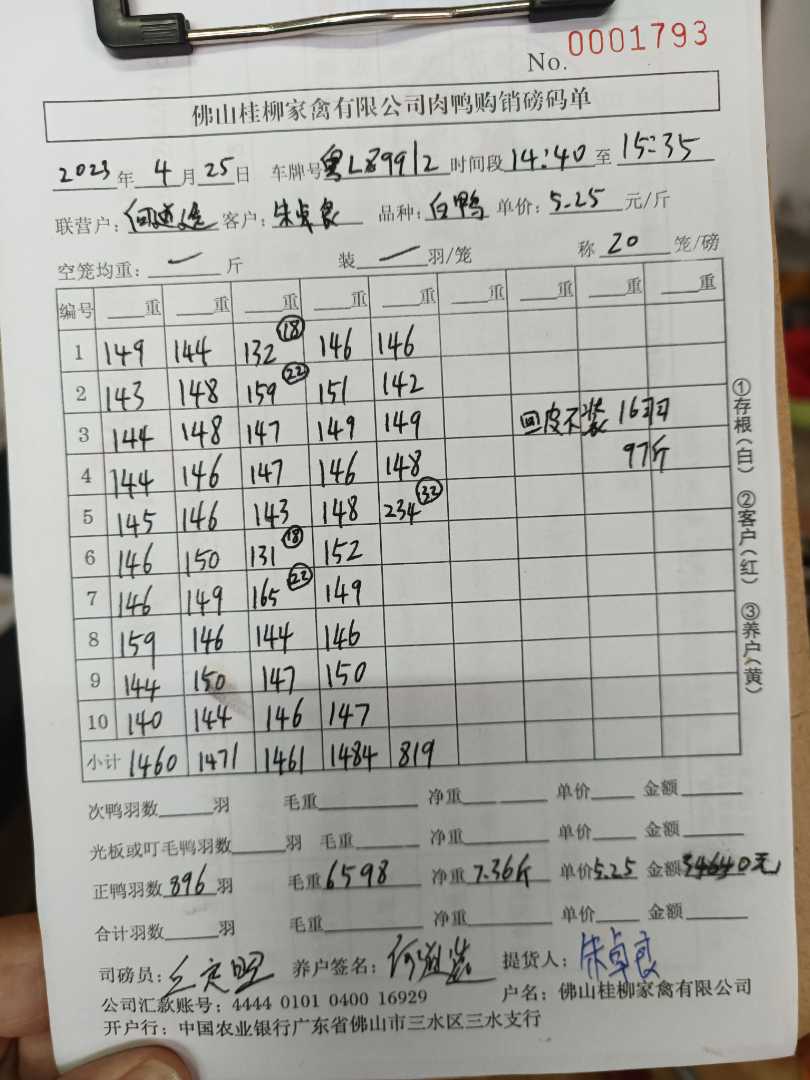 No. 0001793
佛山桂柳家禽有限公司肉鸭购销磅码单
2023年 4 月 25 日 车牌号 粤L89912 时间段 14:40 至 15:35
联营户: 客户: 朱卓良 品种: 白鸭 单价: 5.25 元/斤
空笼均重: 一 斤 装 一 羽/笼 称 20 笼/磅
编号 重 重 重 重 重 重 重 重 重
1 149 144 132 ⑱ 146 146
2 143 148 159 ㉒ 151 142
3 144 148 147 149 149 回皮不装 16羽
4 144 146 147 146 148 97斤
5 145 146 143 148 234 ㉜
6 146 150 131 ⑱ 152
7 146 149 165 ㉒ 149
8 159 146 144 146
9 144 150 147 150
10 140 144 146 147
小计 1460 1471 1461 1484 819
次鸭羽数 羽 毛重 净重 单价 金额
光板或叮毛鸭羽数 羽 毛重 净重 单价 金额
正鸭羽数 896 羽 毛重 6598 净重 7.36斤 单价 5.25 金额 34640元
合计羽数 羽 毛重 净重 单价 金额
司磅员: 养户签名: 提货人: 朱卓良
公司汇款账号: 4444 0101 0400 16929 户名: 佛山桂柳家禽有限公司
开户行: 中国农业银行广东省佛山市三水区三水支行
①存根(白) ②客户(红) ③养户(黄)